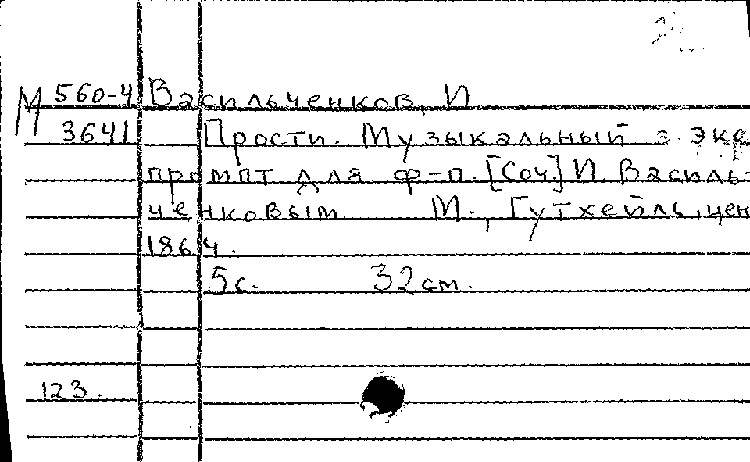 М 560-4 Васильченков, И
3641 Прости. Музыкальный экс
промпт для ф-п. [Соч.] И Василь-
ченковым М., Гутхейль, цен
1864.
5с. 32 см.
123.